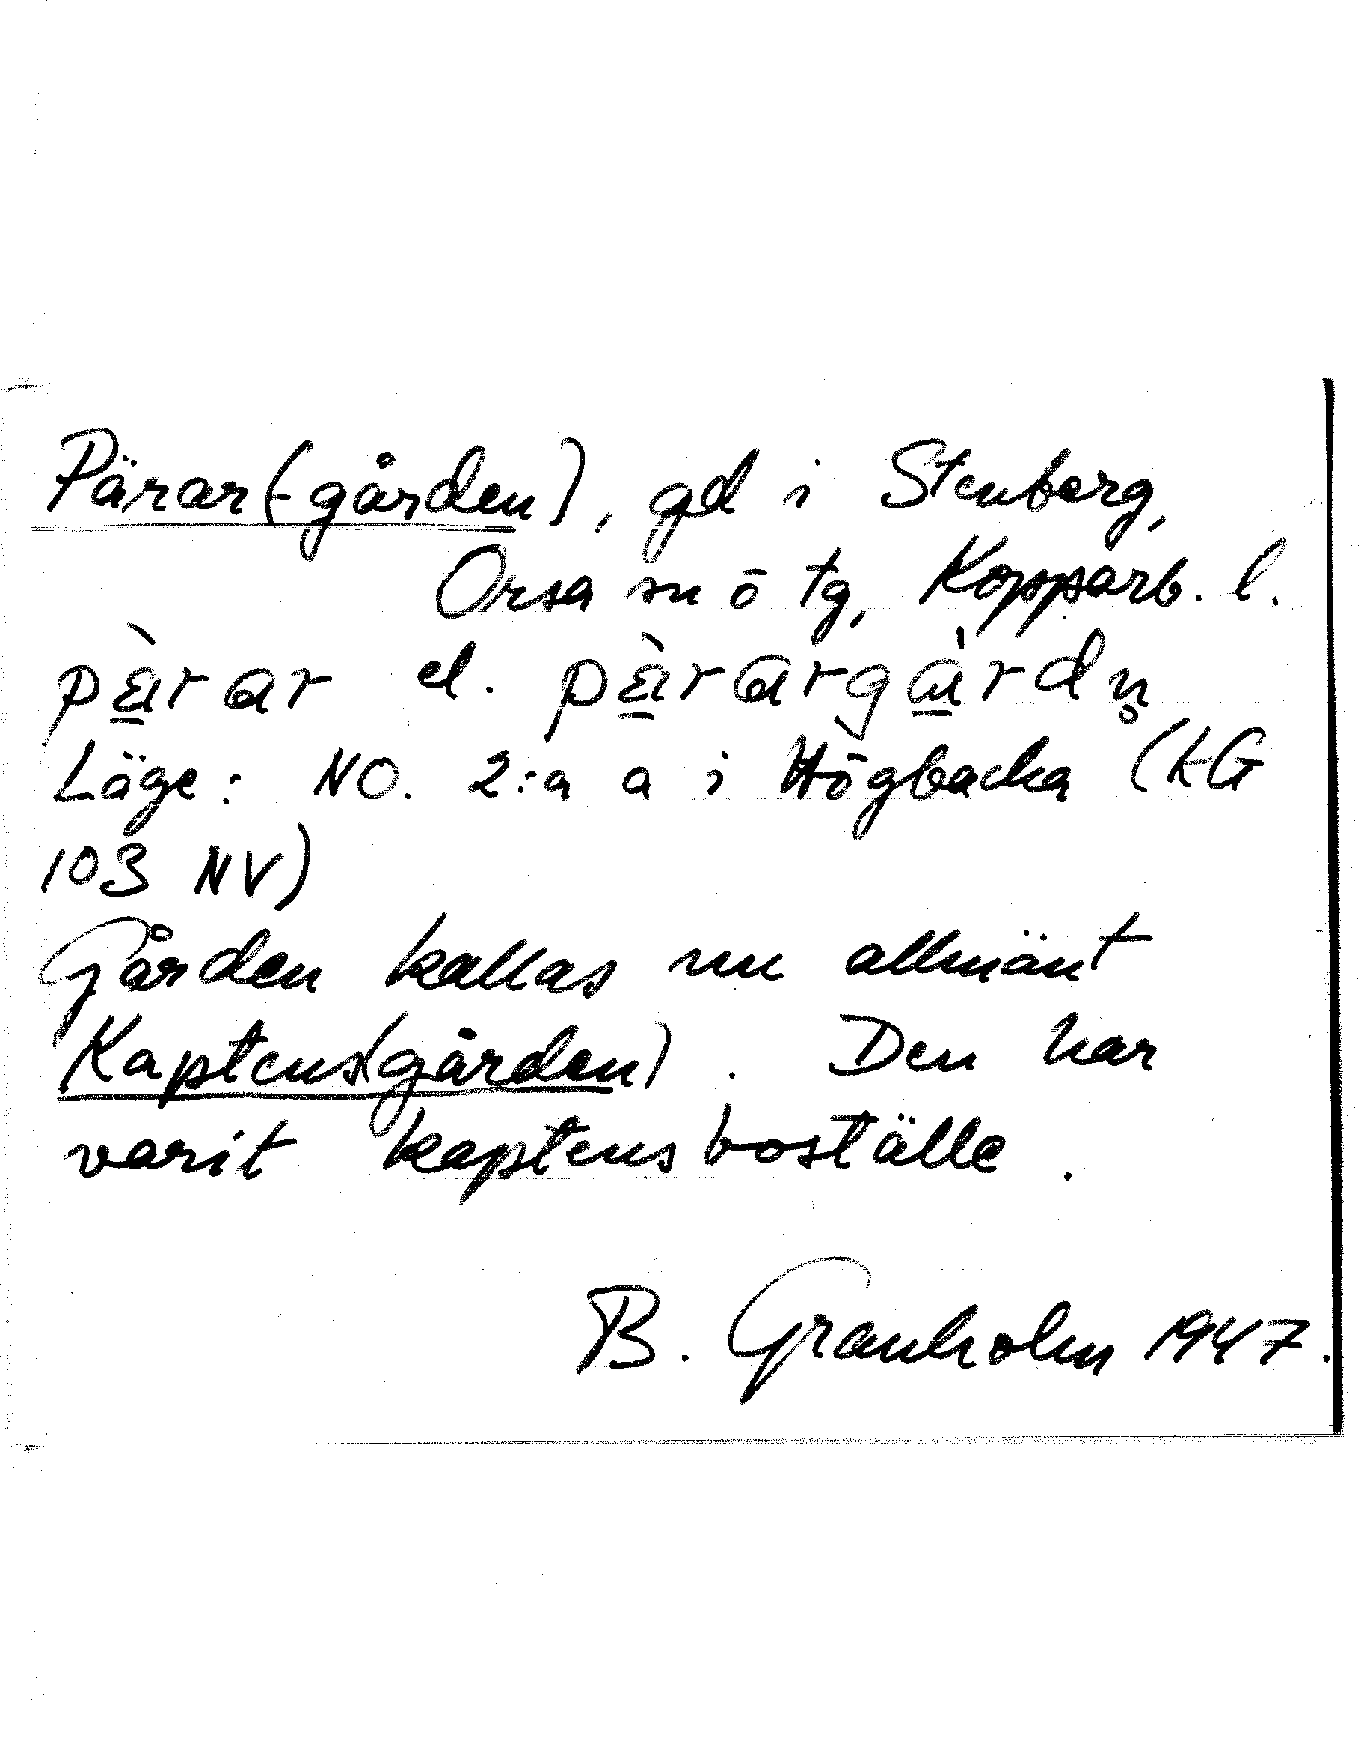 Pärar(-gården), gd i Stenberg,
Orsa sn ö tg, Kopparb. l.
pä̀rar el. pä̀rargàrdn̥
Läge: NO. 2:a a i Högbacka (KG
103 NV)
Gården kallas nu allmänt
Kaptens(gården). Den har
varit kaptensboställe.
B. Granholm 1947.